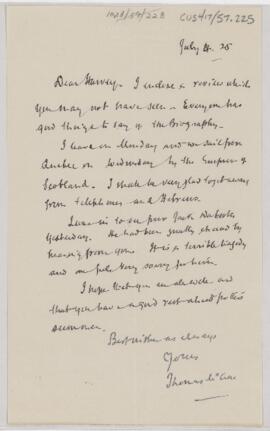 1028/57/223
CUS417/57.225
July 4. 25
Dear Harvey - I enclose a review which
you may not have seen - Everyone has
good things to say of the Biography.
I leave on Monday and we sail from
Quebec on Wednesday by the Empress of
Scotland. I shall be very glad to get away
from telephones and
in to see poor Jack
yesterday. He had been greatly cheered by
hearing from you. It is a terrible tragedy
and one feels very sorry for him.
I hope that you are all well and
that you have a good rest ahead for the
summer.
Best wishes as always
Yours
Thomas McCrae